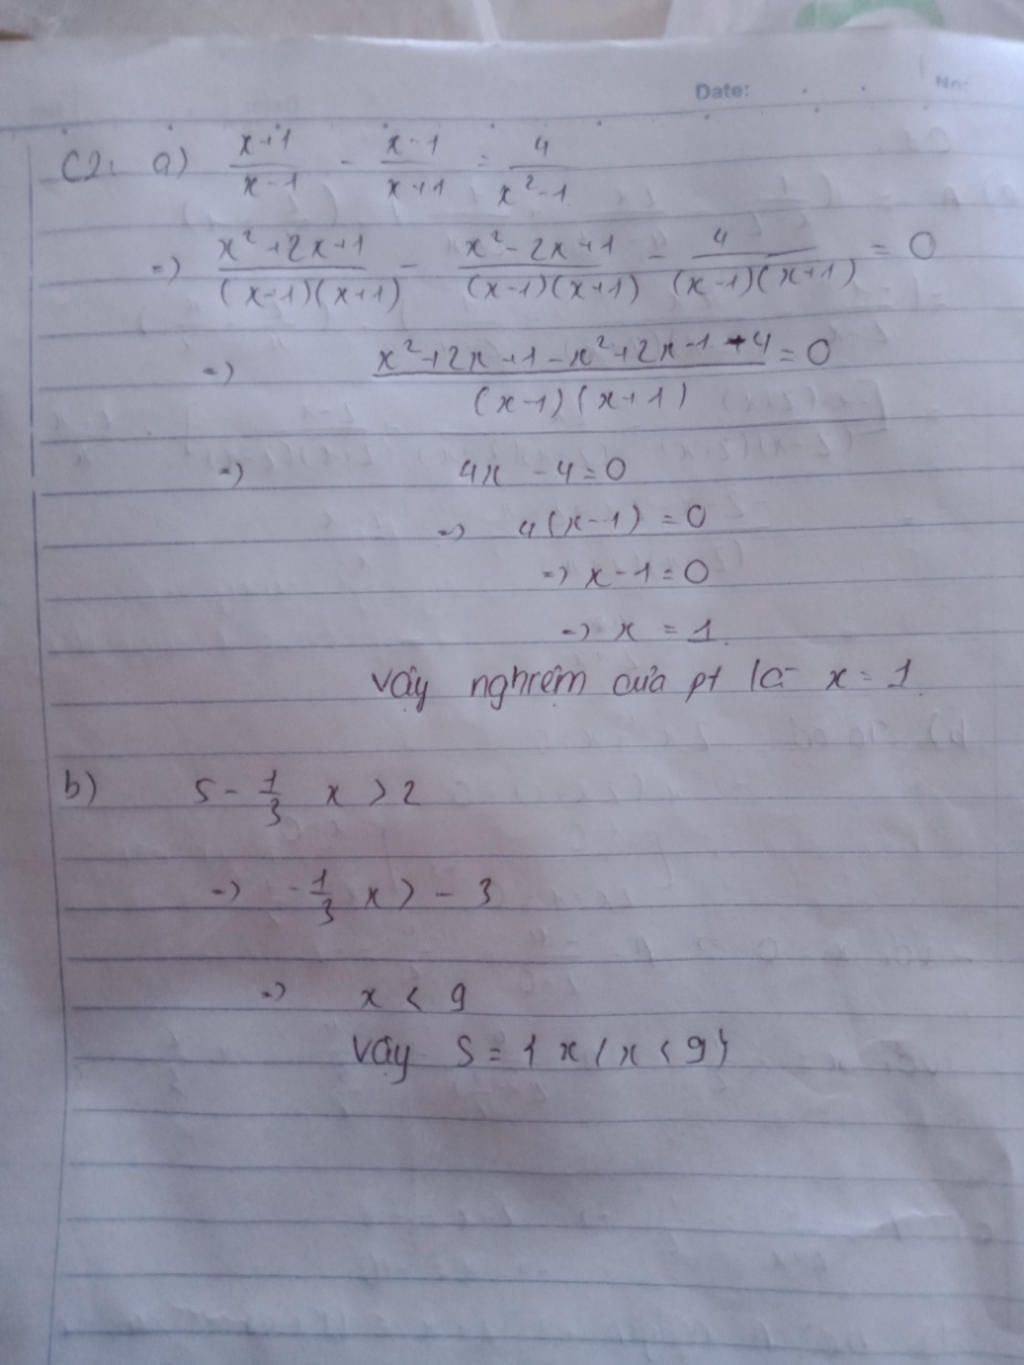 Date: No:
C2: a) \frac{x+1}{x-1} - \frac{x-1}{x+1} = \frac{4}{x^2-1}
=) \frac{x^2+2x+1}{(x-1)(x+1)} - \frac{x^2-2x+1}{(x-1)(x+1)} - \frac{4}{(x-1)(x+1)} = 0
=) \frac{x^2+2x+1-x^2+2x-1-4}{(x-1)(x+1)} = 0
=) 4x - 4 = 0
=) 4(x-1) = 0
=) x-1 = 0
=) x = 1
Vậy nghiệm của pt là x = 1
b) 5 - \frac{1}{3} x > 2
=) -\frac{1}{3} x > -3
=) x < 9
Vậy S = {x / x < 9}